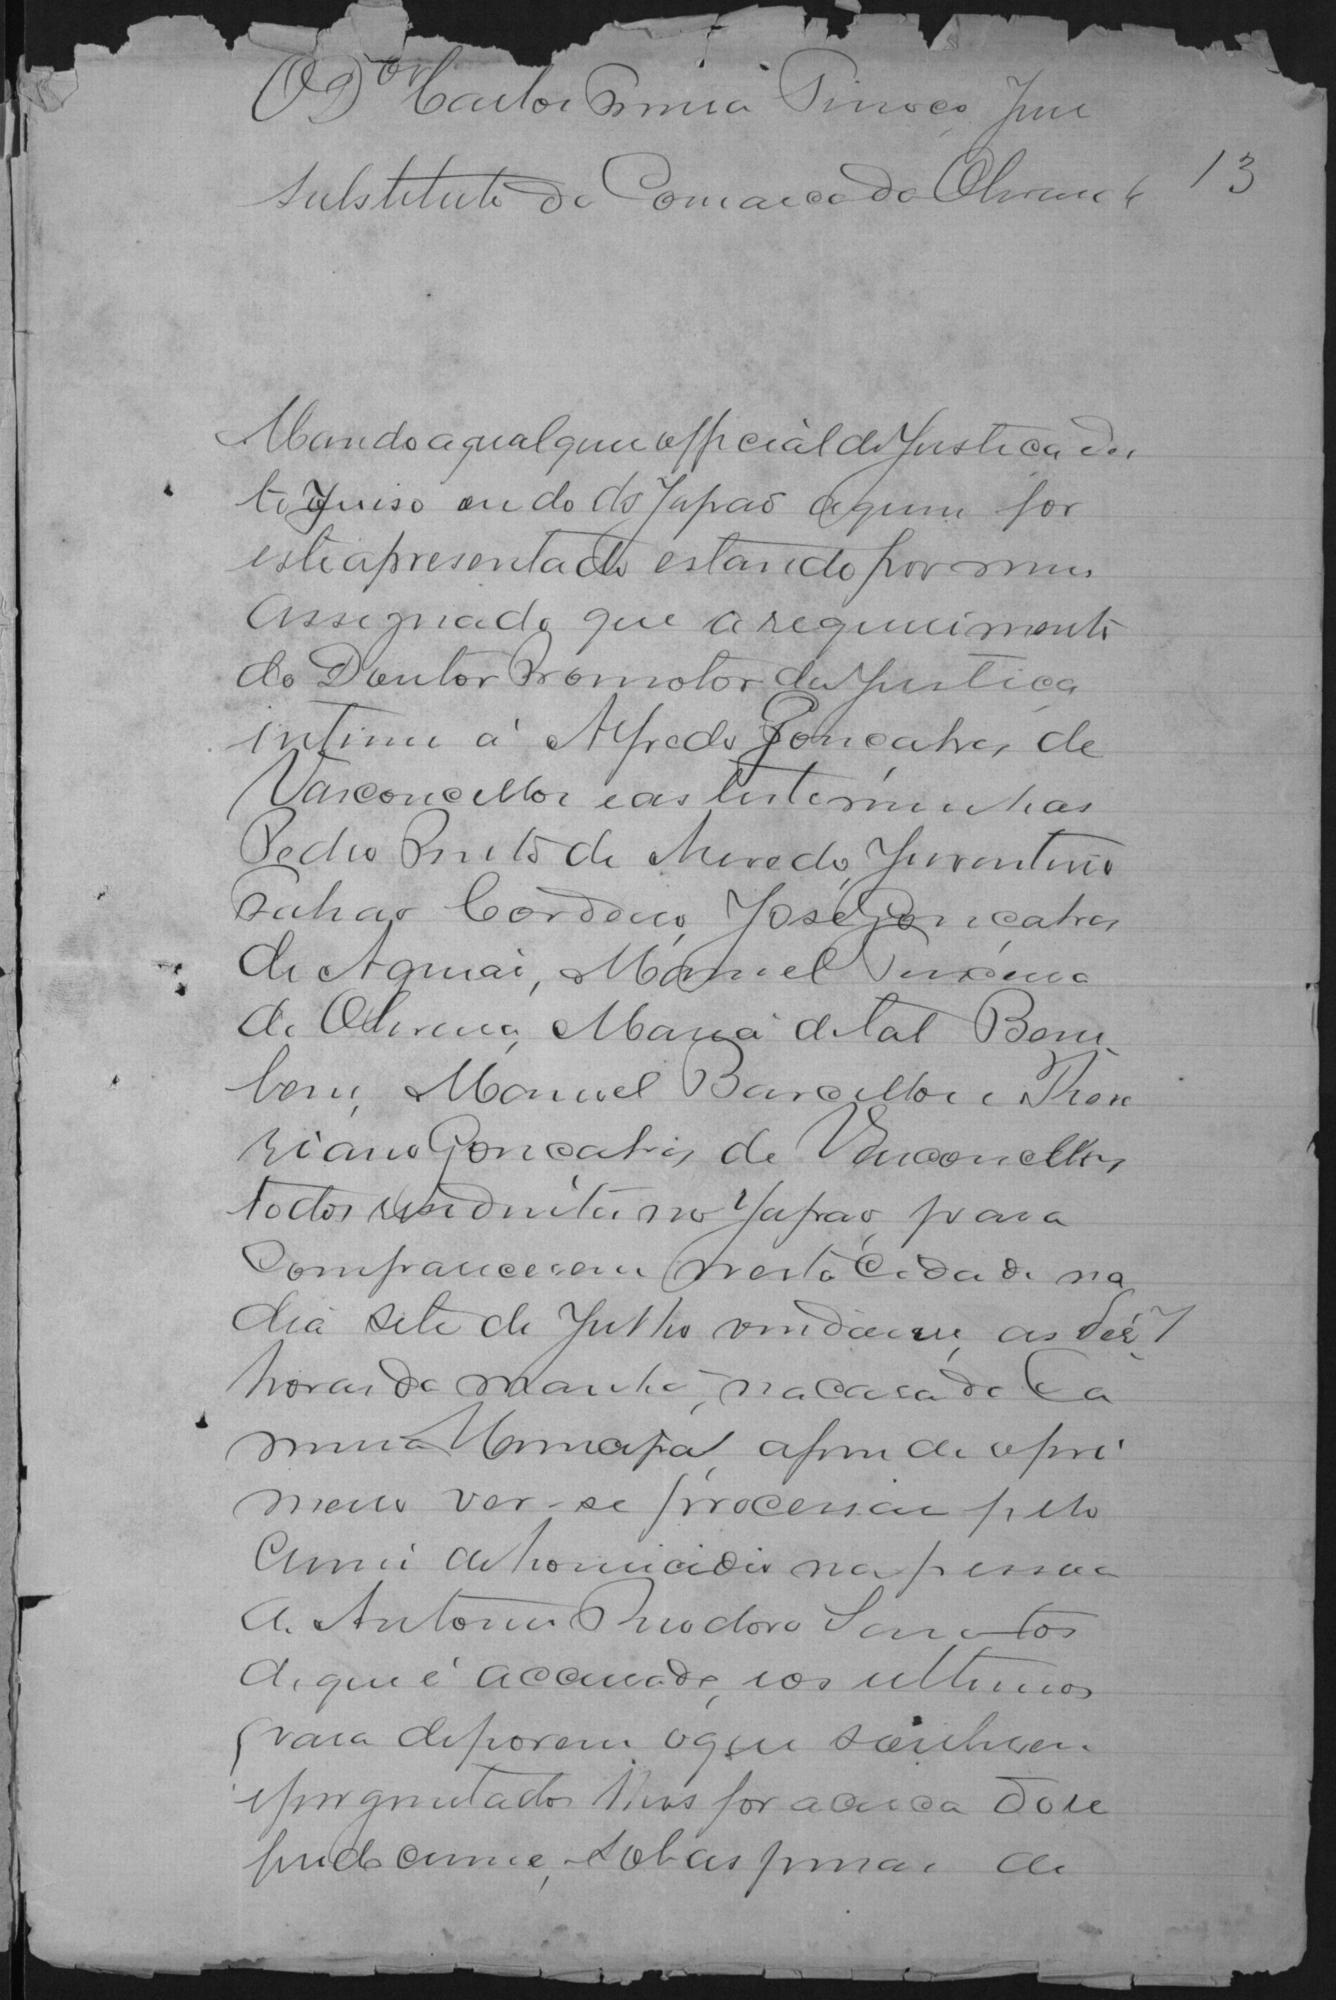 O Dor Carlos Pinoco Juis
substituto da Comarca da Oliveira
13
Mando a qualquer official de Justica des
te Juiso ou do do Japaõ a quem for
este apresentado estando por mim
assegnado que a requerimento
do Doutor Promotor da Justiça
intime á Alfredo Gonçalves de
Vasconcellos e as testeminhas
Pedro de Asevedo, Juventino
Cordeiro, José Gonçalves
de Aguiar, Manuel Teixeira
de Oliveira, Maria de tal Bem
bem, Manoel Barcellos e
Gonçalves de Vasconcellos
todos residentes no Japaõ, para
comparecerem nesta Cidade na
dia sete de Julho vindouro, as dez 7
horas da manhã, na casa da Ca
mera Municipal, afim de o pri
meiro ver-se processar pelo
crime de homicidio na pessoa
de Antonio Santos
de que é accusado, e os ultimos
para deporem o que souberem
e perguntados lhes for acerca do re
ferido crime, sob as penas de